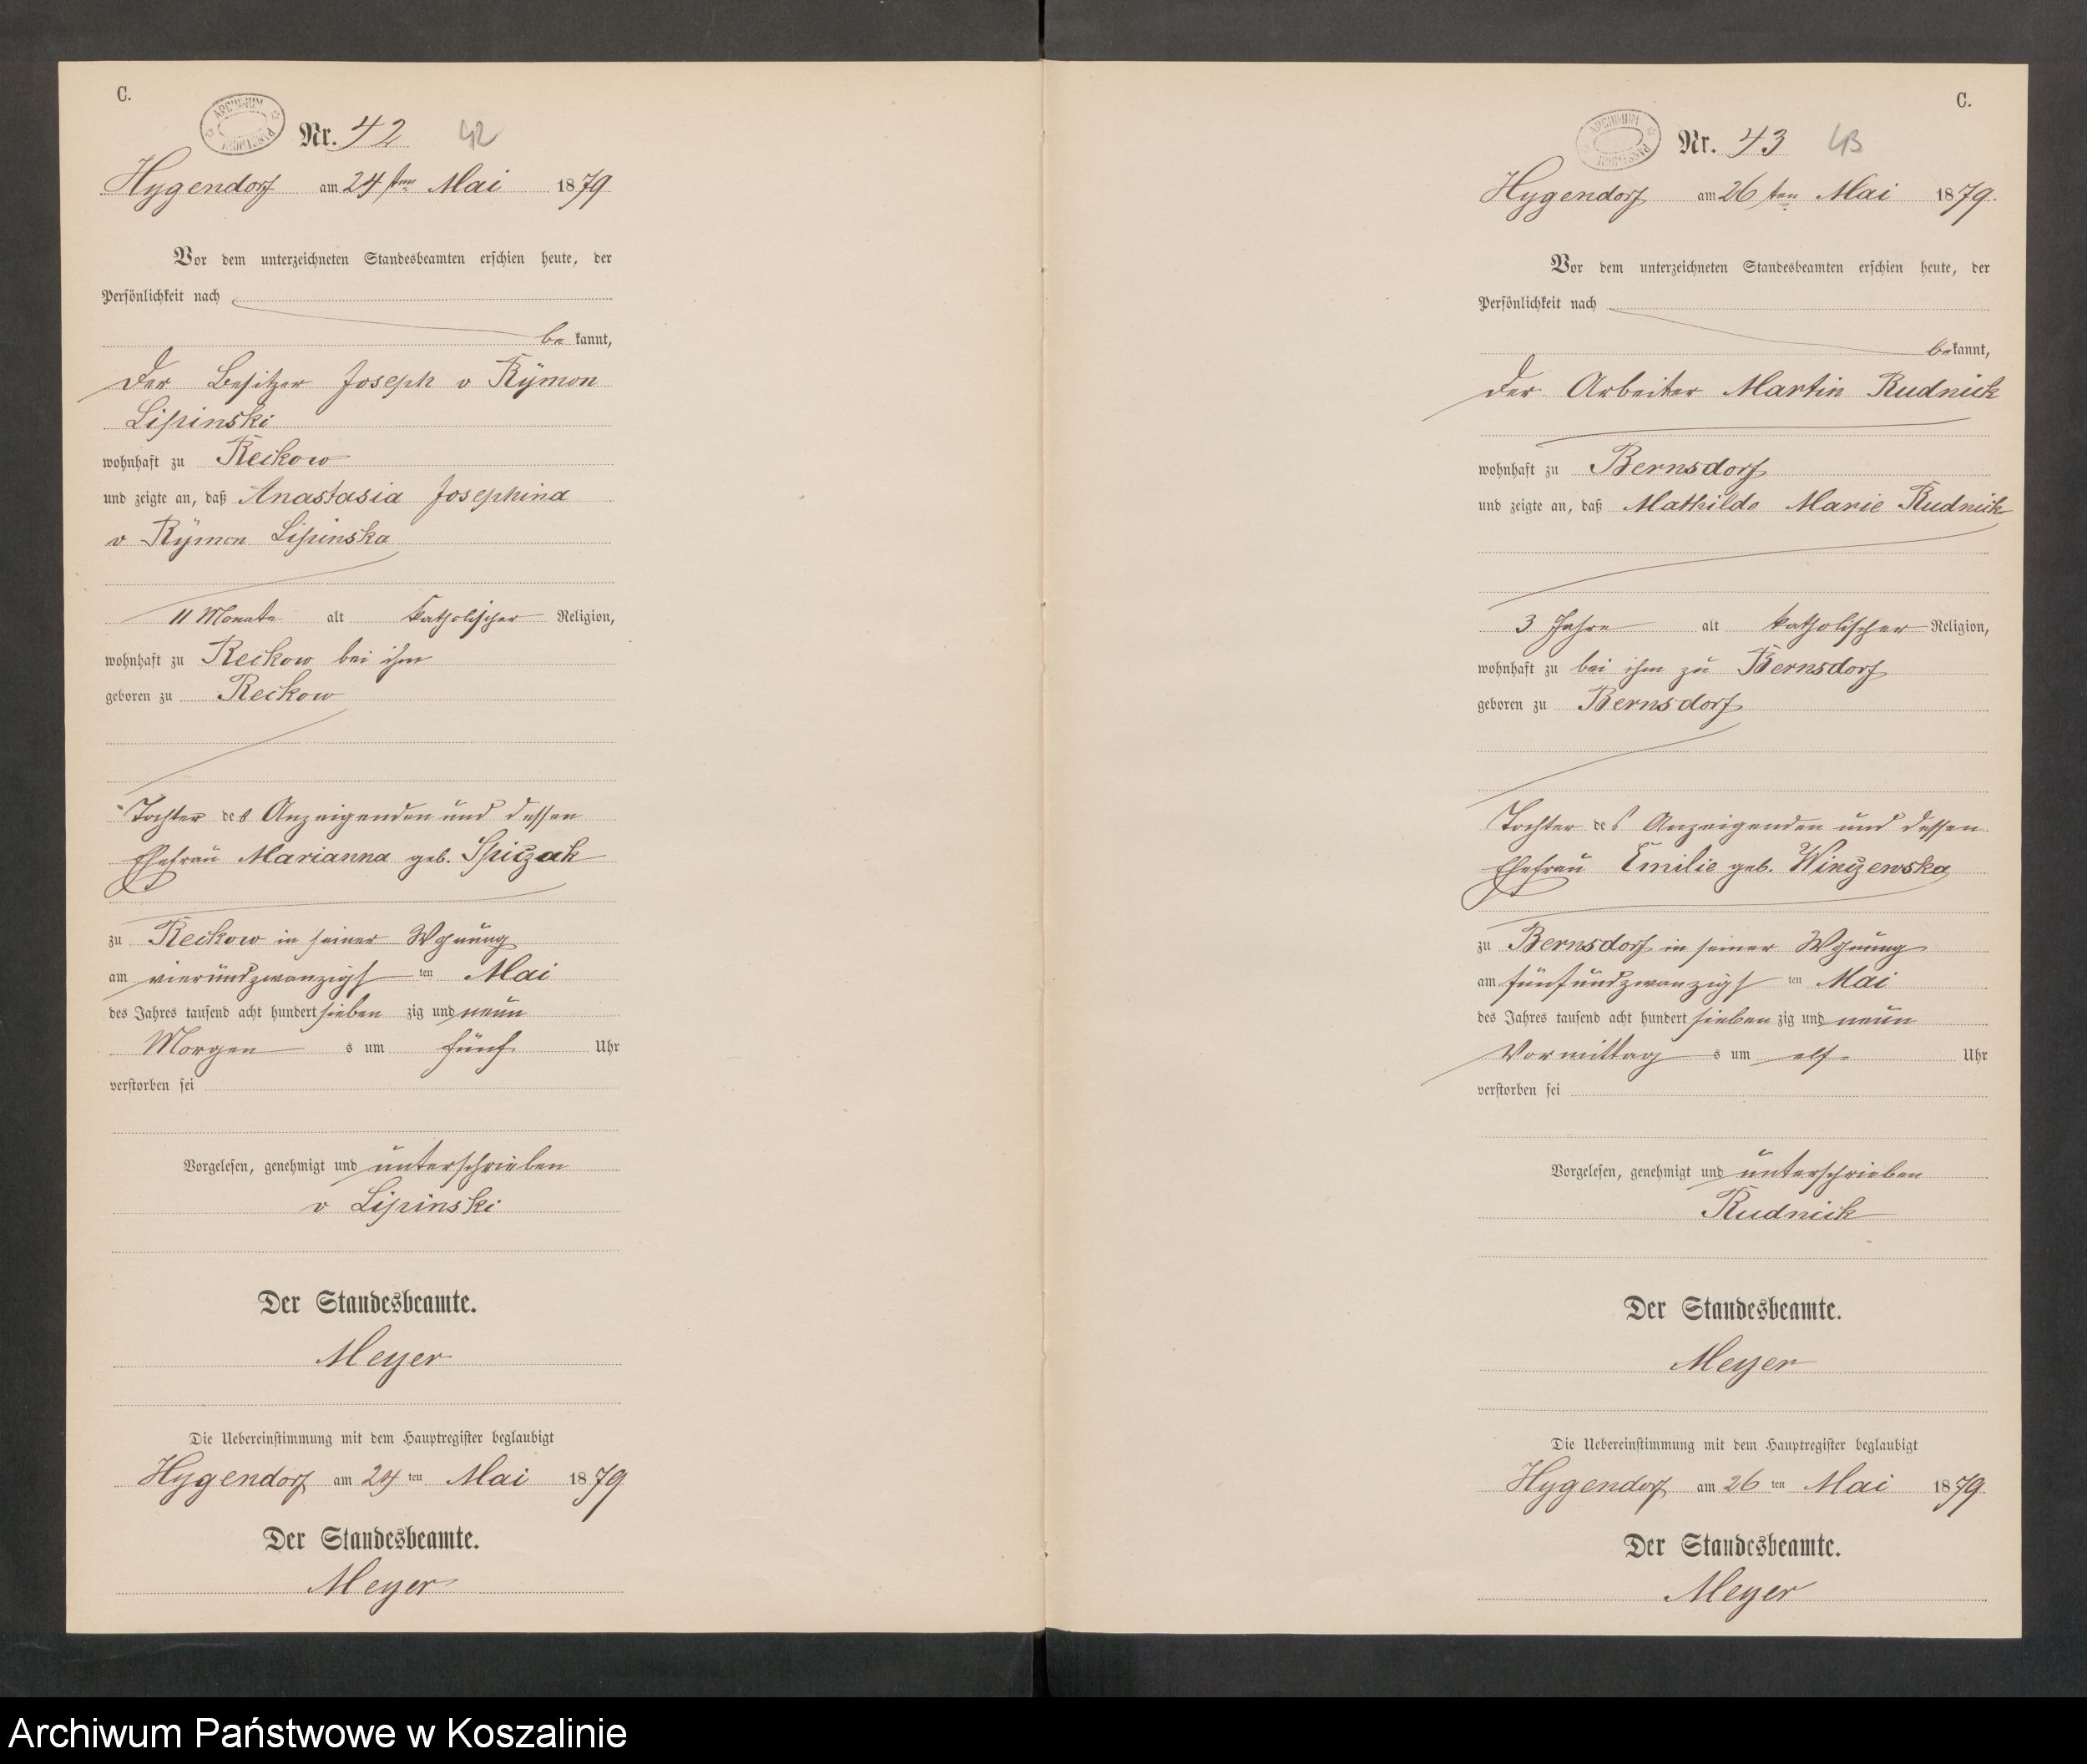 C.
ARCHIWUM PAŃSTWOWE
Nr. 42 42
Hygendorf am 24 ten Mai 1879.
Vor dem unterzeichneten Standesbeamten erschien heute, der
Persönlichkeit nach
be kannt,
der Besitzer Joseph v Rÿmon
Lipinski
wohnhaft zu Reckow
und zeigte an, daß Anastasia Josephina
v Rÿmon Lipinska
11 Monate alt katholischer Religion,
wohnhaft zu Reckow bei ihm
geboren zu Reckow
Tochter des Anzeigenden und dessen
Ehefrau Marianna geb. Spiczak
zu Reckow in seiner Wohnung
am vierundzwanzigsten Mai
des Jahres tausend acht hundert siebenzig und neun
Morgens um fünf Uhr
verstorben sei
Vorgelesen, genehmigt und unterschrieben
v Lipinski
Der Standesbeamte.
Meyer
Die Uebereinstimmung mit dem Hauptregister beglaubigt
Hygendorf am 24 ten Mai 1879
Der Standesbeamte.
Meyer
C.
ARCHIWUM PAŃSTWOWE
Nr. 43 43
Hygendorf am 26 ten Mai 1879.
Vor dem unterzeichneten Standesbeamten erschien heute, der
Persönlichkeit nach
bekannt,
der Arbeiter Martin Rudnick
wohnhaft zu Bernsdorf
und zeigte an, daß Mathilde Marie Rudnick
3 Jahre alt katholischer Religion,
wohnhaft zu bei ihm zu Bernsdorf
geboren zu Bernsdorf
Tochter des Anzeigenden und dessen
Ehefrau Emilie geb. Winczewska
zu Bernsdorf in seiner Wohnung
am fünfundzwanzigsten Mai
des Jahres tausend acht hundert siebenzig und neun
Vormittags um elf Uhr
verstorben sei
Vorgelesen, genehmigt und unterschrieben
Rudnick
Der Standesbeamte.
Meyer
Die Uebereinstimmung mit dem Hauptregister beglaubigt
Hygendorf am 26 ten Mai 1879.
Der Standesbeamte.
Meyer
Archiwum Państwowe w Koszalinie